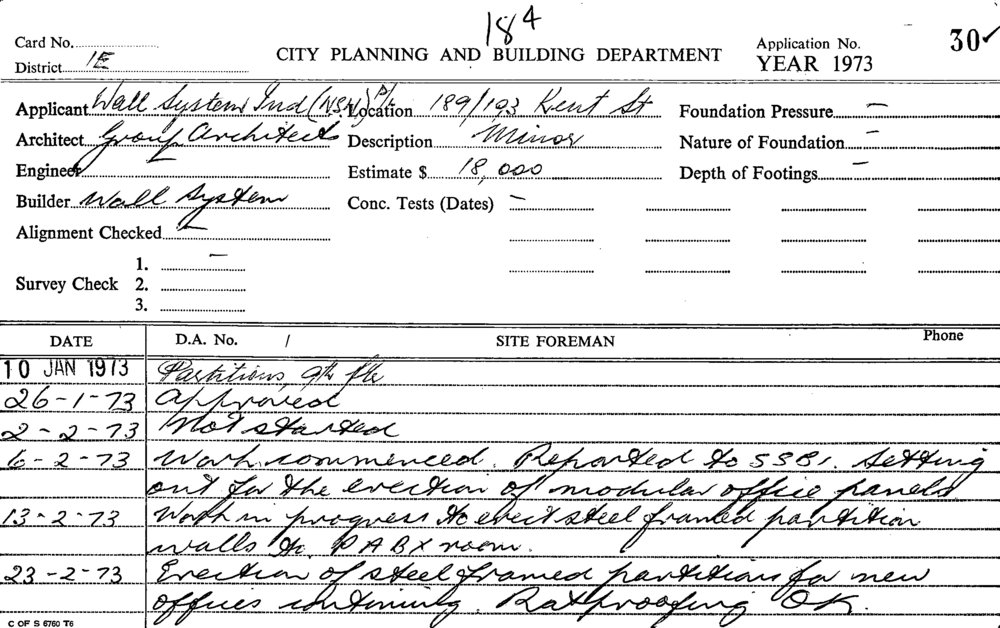 184
Card No.
CITY PLANNING AND BUILDING DEPARTMENT
Application No. 30✓
District 1E
YEAR 1973
Applicant Wall System Ind (NSW) P/L Location 189/193 Kent St Foundation Pressure —
Architect Group Architects Description Minor Nature of Foundation —
Engineer — Estimate $ 18,000 Depth of Footings —
Builder Wall System Conc. Tests (Dates) —
Alignment Checked —
Survey Check 1. —
2.
3.
DATE D.A. No. / SITE FOREMAN Phone
10 JAN 1973 Partitions, 9th flr
26-1-73 Approved
2-2-73 Not started
6-2-73 Work commenced. Reported to SSBI. Setting
out for the erection of modular office panels
13-2-73 Work in progress to erect steel framed partition
walls to PABX room.
23-2-73 Erection of steel framed partitions for new
offices continuing. Ratproofing OK.
C OF S 6760 T6